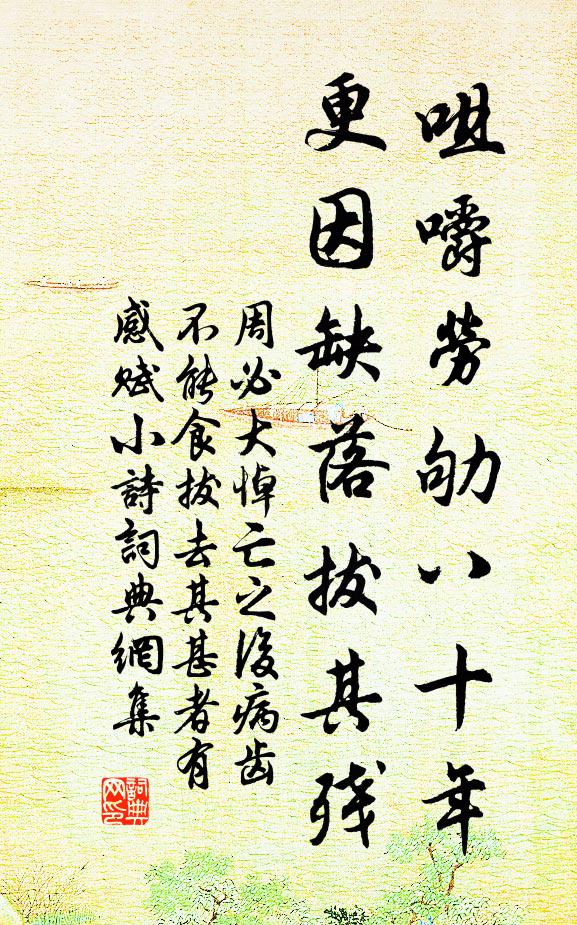 咀嚼劳劬八十年
更因缺落拔其残
周必大悼亡之後病齿
不能食拔去其甚者有
感赋小詩詞典網集
詞典
网印